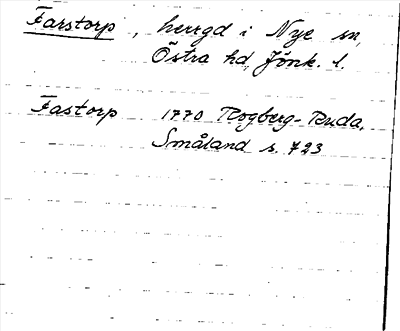 Farstorp, herrgd i Nye sn,
Östra hd, Jönk. l.
Fastorp 1770 Rogberg-Ruda,
Småland s. 723